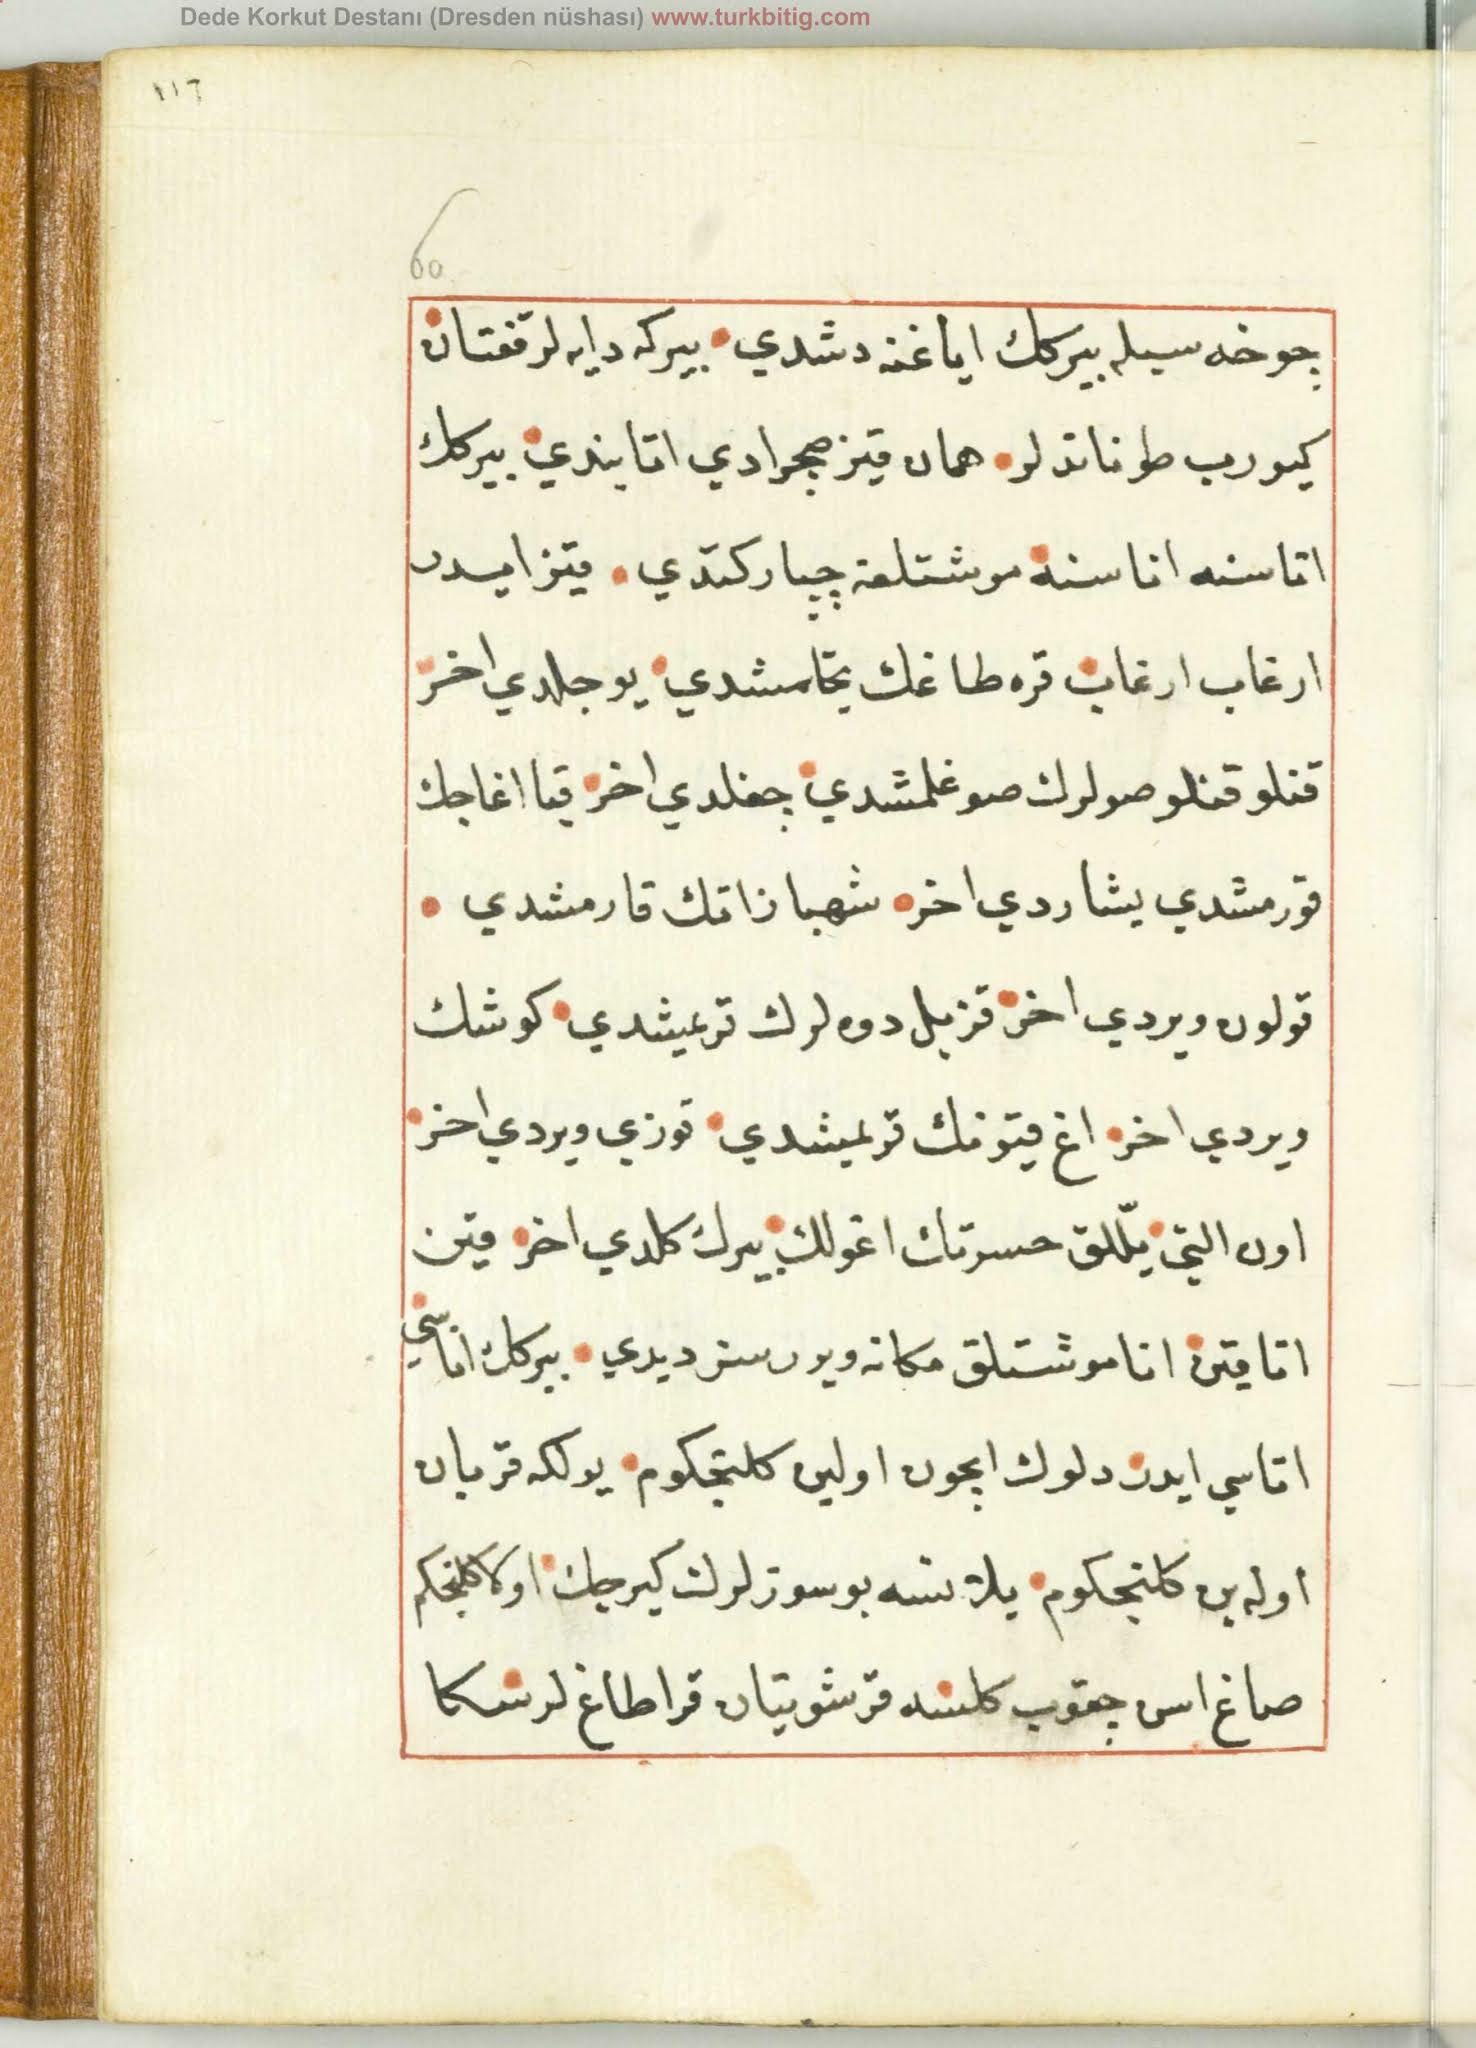 Dede Korkut Destanı (Dresden nüshası) www.turkbitig.com
١١٦
60
چوخه سیله بیركك ایاغنه دشدي بیركه دایه لر قفتان
كیورب طوناتدلر همان قیز صچرادي اتا بندي بیركك
اتاسنه اناسنه موشتلغه چپار كتدي قیز ایدر
ارغاب ارغاب قره طاغك یقلمشدي یوجلدي اخر
قنلو قنلو صولرك صوغلمشدي چغلدي اخر قبا اغاجك
قورمشدي یشاردي اخر شهباز اتك قارمشدي
قولون ویردي اخر قزیل دوه لرك قرمیشدي كوشك
ویردي اخر اغ قیونك قرمیشدي قوزي ویردي اخر
اون التي یللق حسرتك اغولك بیرك كلدي اخر قین
اتا قین انا موشتلق مكانه ویررسز دیدي بیركك اناسي
اتاسي ایدر دلوك ایچون اولین كلنجكوم یولكه قربان
اوله ین كلنجكوم یلانسه بو سوزلرك كیرچك اولا كلنجكم
صاغ اسن چقوب كلسه قرشو یتان قرا طاغ لر سكا